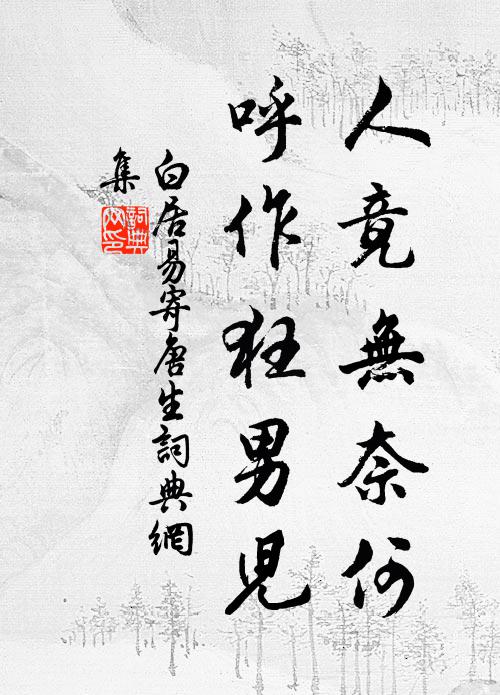 人竟無奈何
呼作狂男兒
白居易寄唐生詞典網
集
詞典網印